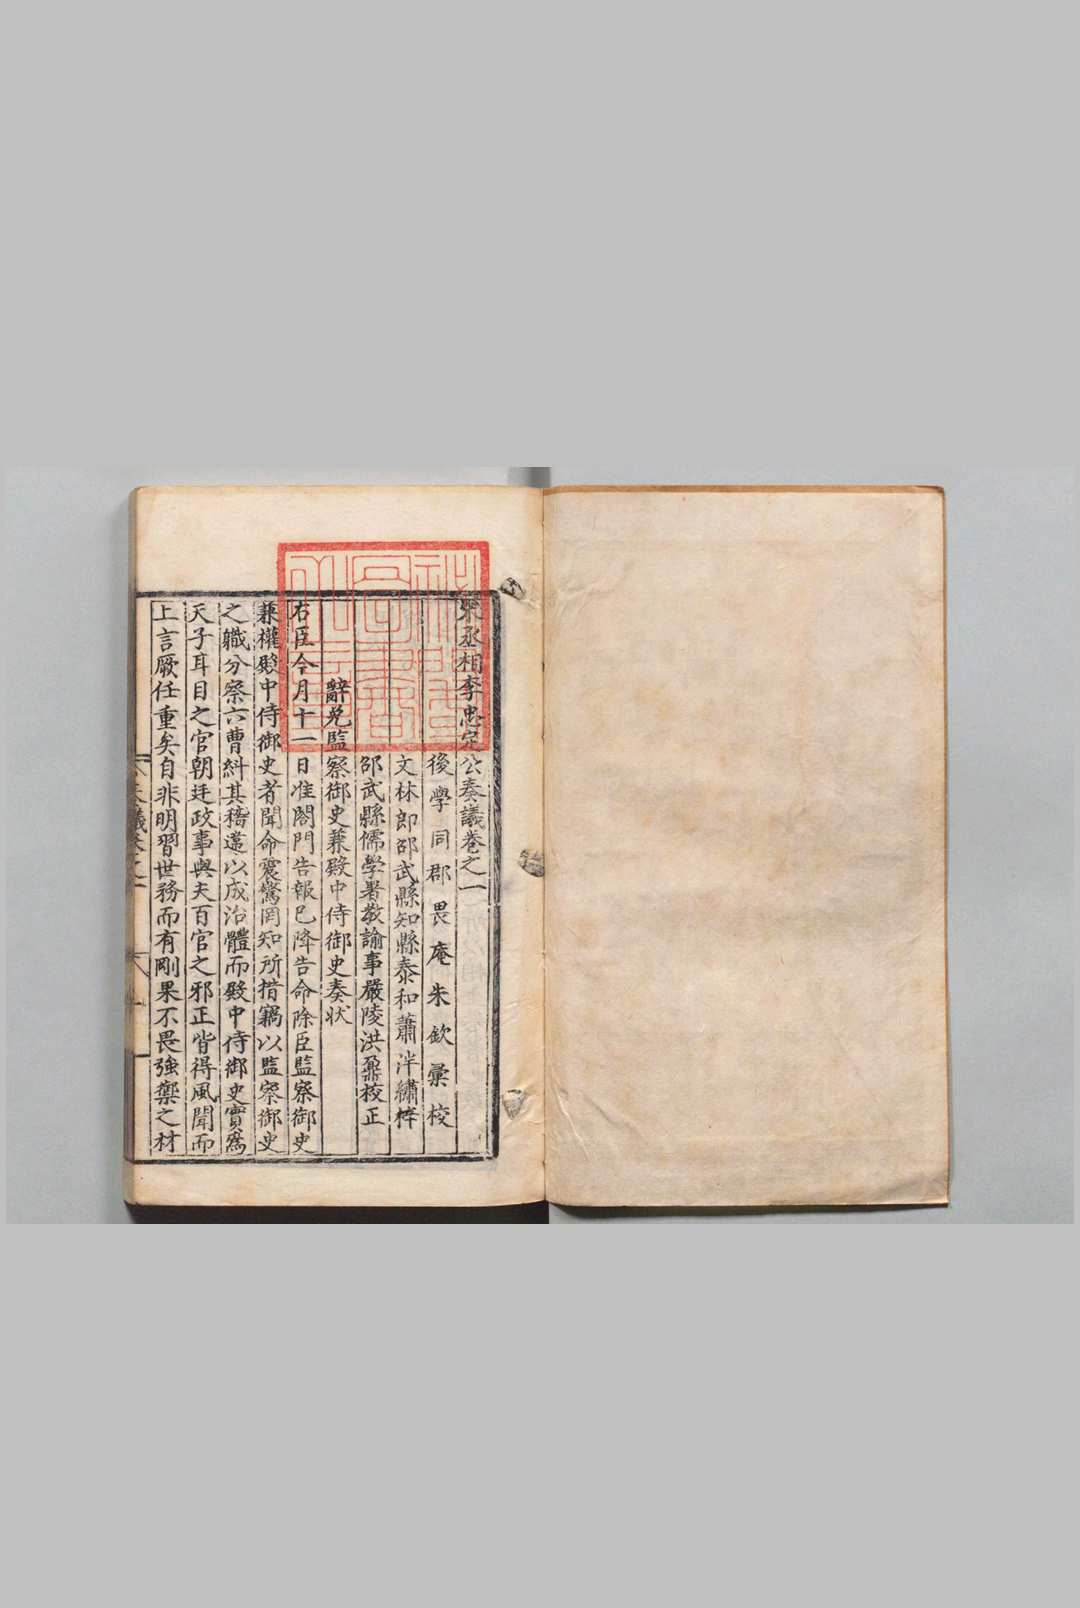 宋丞相李忠定公奏議卷之一
後學同郡畏庵朱欽彙校
文林郎邵武縣知縣泰和蕭泮繡梓
邵武縣儒學署教諭事嚴陵洪鼐校正
辭免監察御史兼殿中侍御史奏狀
右臣今月十一日准閤門告報已降告命除臣監察御史
兼權殿中侍御史者聞命震驚罔知所措竊以監察御史
之職分察六曹糾其稽違以成治體而殿中侍御史實爲
天子耳目之官朝廷政事與夫百官之邪正皆得風聞而
上言厥任重矣自非明習世務而有剛果不畏強禦之材